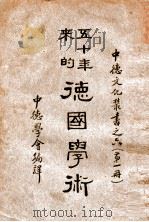 中德文化叢書之六(第一冊)
五十年
來的
德國學術
中德學會編譯